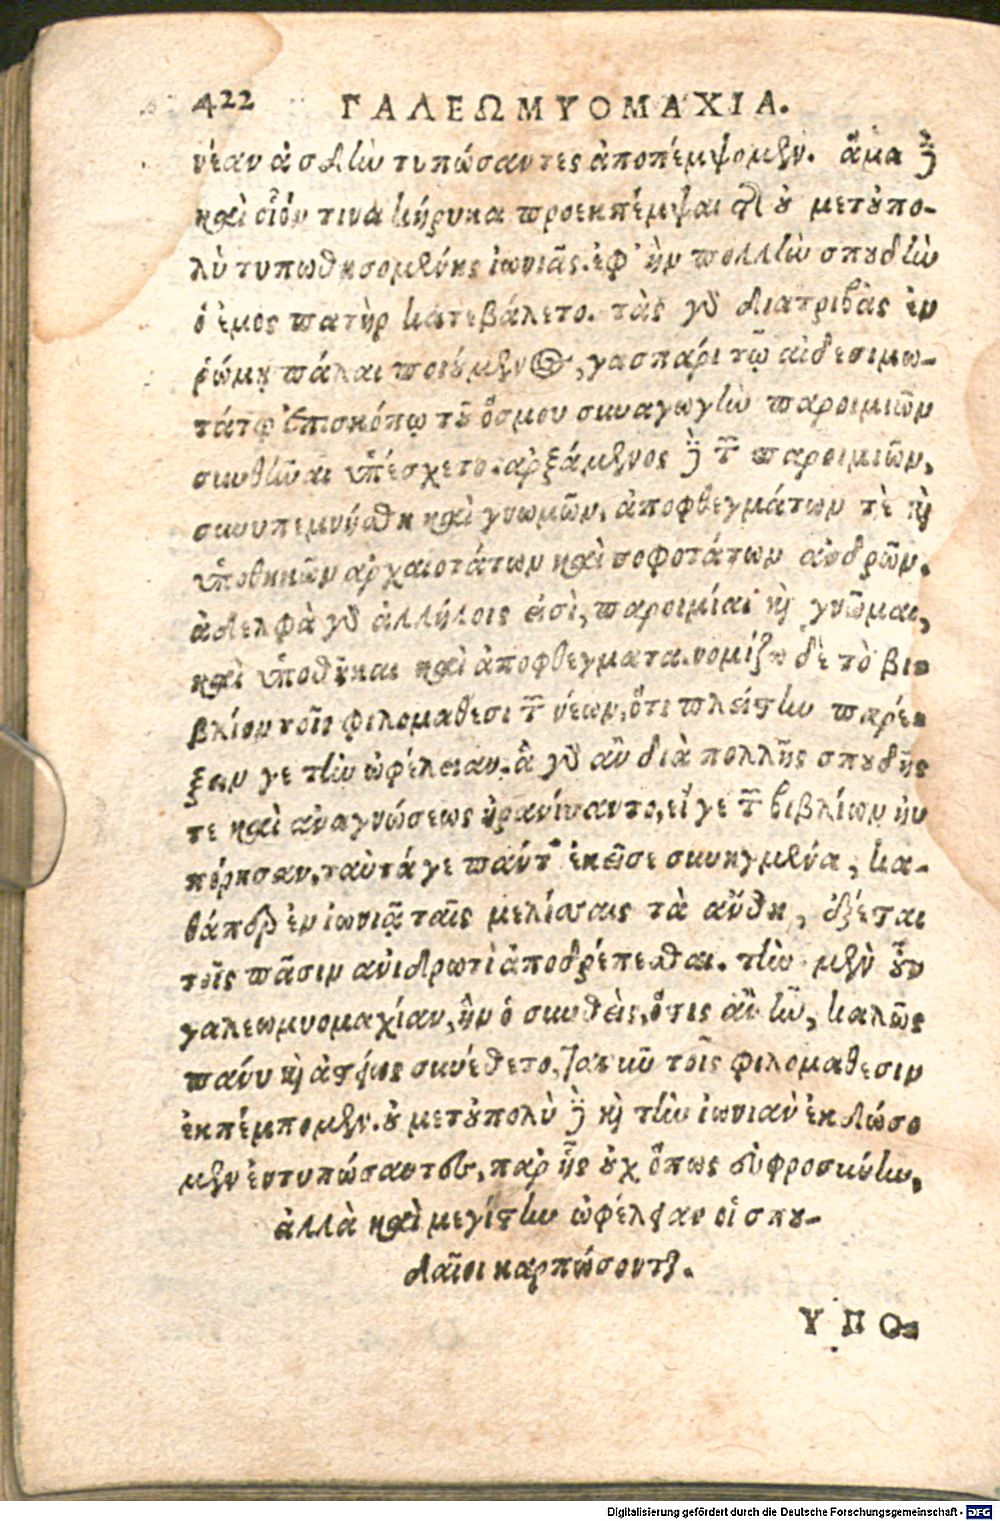 422 ΓΑΛΕΩΜΥΟΜΑΧΙΑ.
νέαν ἀσδὴν τυπώσαντες ἀποπέμψομεν. ἅμα δὲ
καὶ οἷόν τινα κήρυκα προεκπέμψαι τῆς οὐ μετουπο-
λὺ τυπωθησομένης ἰωνιᾶς. ἐφ' ἣν πολλὴν σπουδὴν
ὁ ἐμος πατὴρ κατεβάλετο. τὰς γὰρ διατριβὰς ἐν
ῥώμῃ πάλαι ποιούμενος, γασπάρι τῷ αἰδεσιμω-
τάτῳ ἐπισκόπῳ τοῦ ὄσμου συναγωγὴν παροιμιῶν
συνθεῖναι ὑπέσχετο. ἀρξάμενος δὲ τῶν παροιμιῶν,
συνυπεμνήσθη καὶ γνωμῶν, ἀποφθεγμάτων τὲ καὶ
ὑποθηκῶν ἀρχαιοτάτων καὶ σοφοτάτων ἀνδρῶν.
ἀδελφὰ γὰρ ἀλλήλοις εἰσὶ, παροιμίαι καὶ γνῶμαι,
καὶ ὑποθῆκαι καὶ ἀποφθεγματα. νομίζω δὲ τὸ βι-
βλίον τοῖς φιλομαθεσι τῶν νέων, ὅτι πλείστην παρέ-
ξειν γε τὴν ὠφέλειαν. ἃ γὰρ ἂν διὰ πολλῆς σπουδῆς
τε καὶ ἀναγνώσεως ἠρανίσαντο, εἴ γε τῶν βιβλίων ηὐ
πόρησαν, ταῦτά γε πάντα ἐκεῖσε συνηγμένα, κα-
θάπερ ἐν ἰωνιᾷ ταῖς μελίσσαις τὰ ἄνθη, ἐξέσται
τοῖς πᾶσιν ἀνιδρωτὶ ἀποδρέπεσθαι. τὴν μὲν οὖν
γαλεωμυομαχίαν, ἣν ὁ συνθεὶς, ὅστις ἂν ἦν, καλῶς
πάνυ καὶ ἀστείως συνέθετο, τανῦν τοῖς φιλομαθεσιν
ἐκπέμπομεν. οὐ μετουπολὺ δὲ καὶ τὴν ἰωνιὰν ἐκδώσο
μεν ἐντυπώσαντες, παρ' ἧς οὐχ ὅπως εὐφροσύνην,
ἀλλὰ καὶ μεγίστην ὠφέλειαν οἱ σπου-
δαῖοι καρπώσονται.
ΥΠΟ-
Digitalisierung gefördert durch die Deutsche Forschungsgemeinschaft - DFG